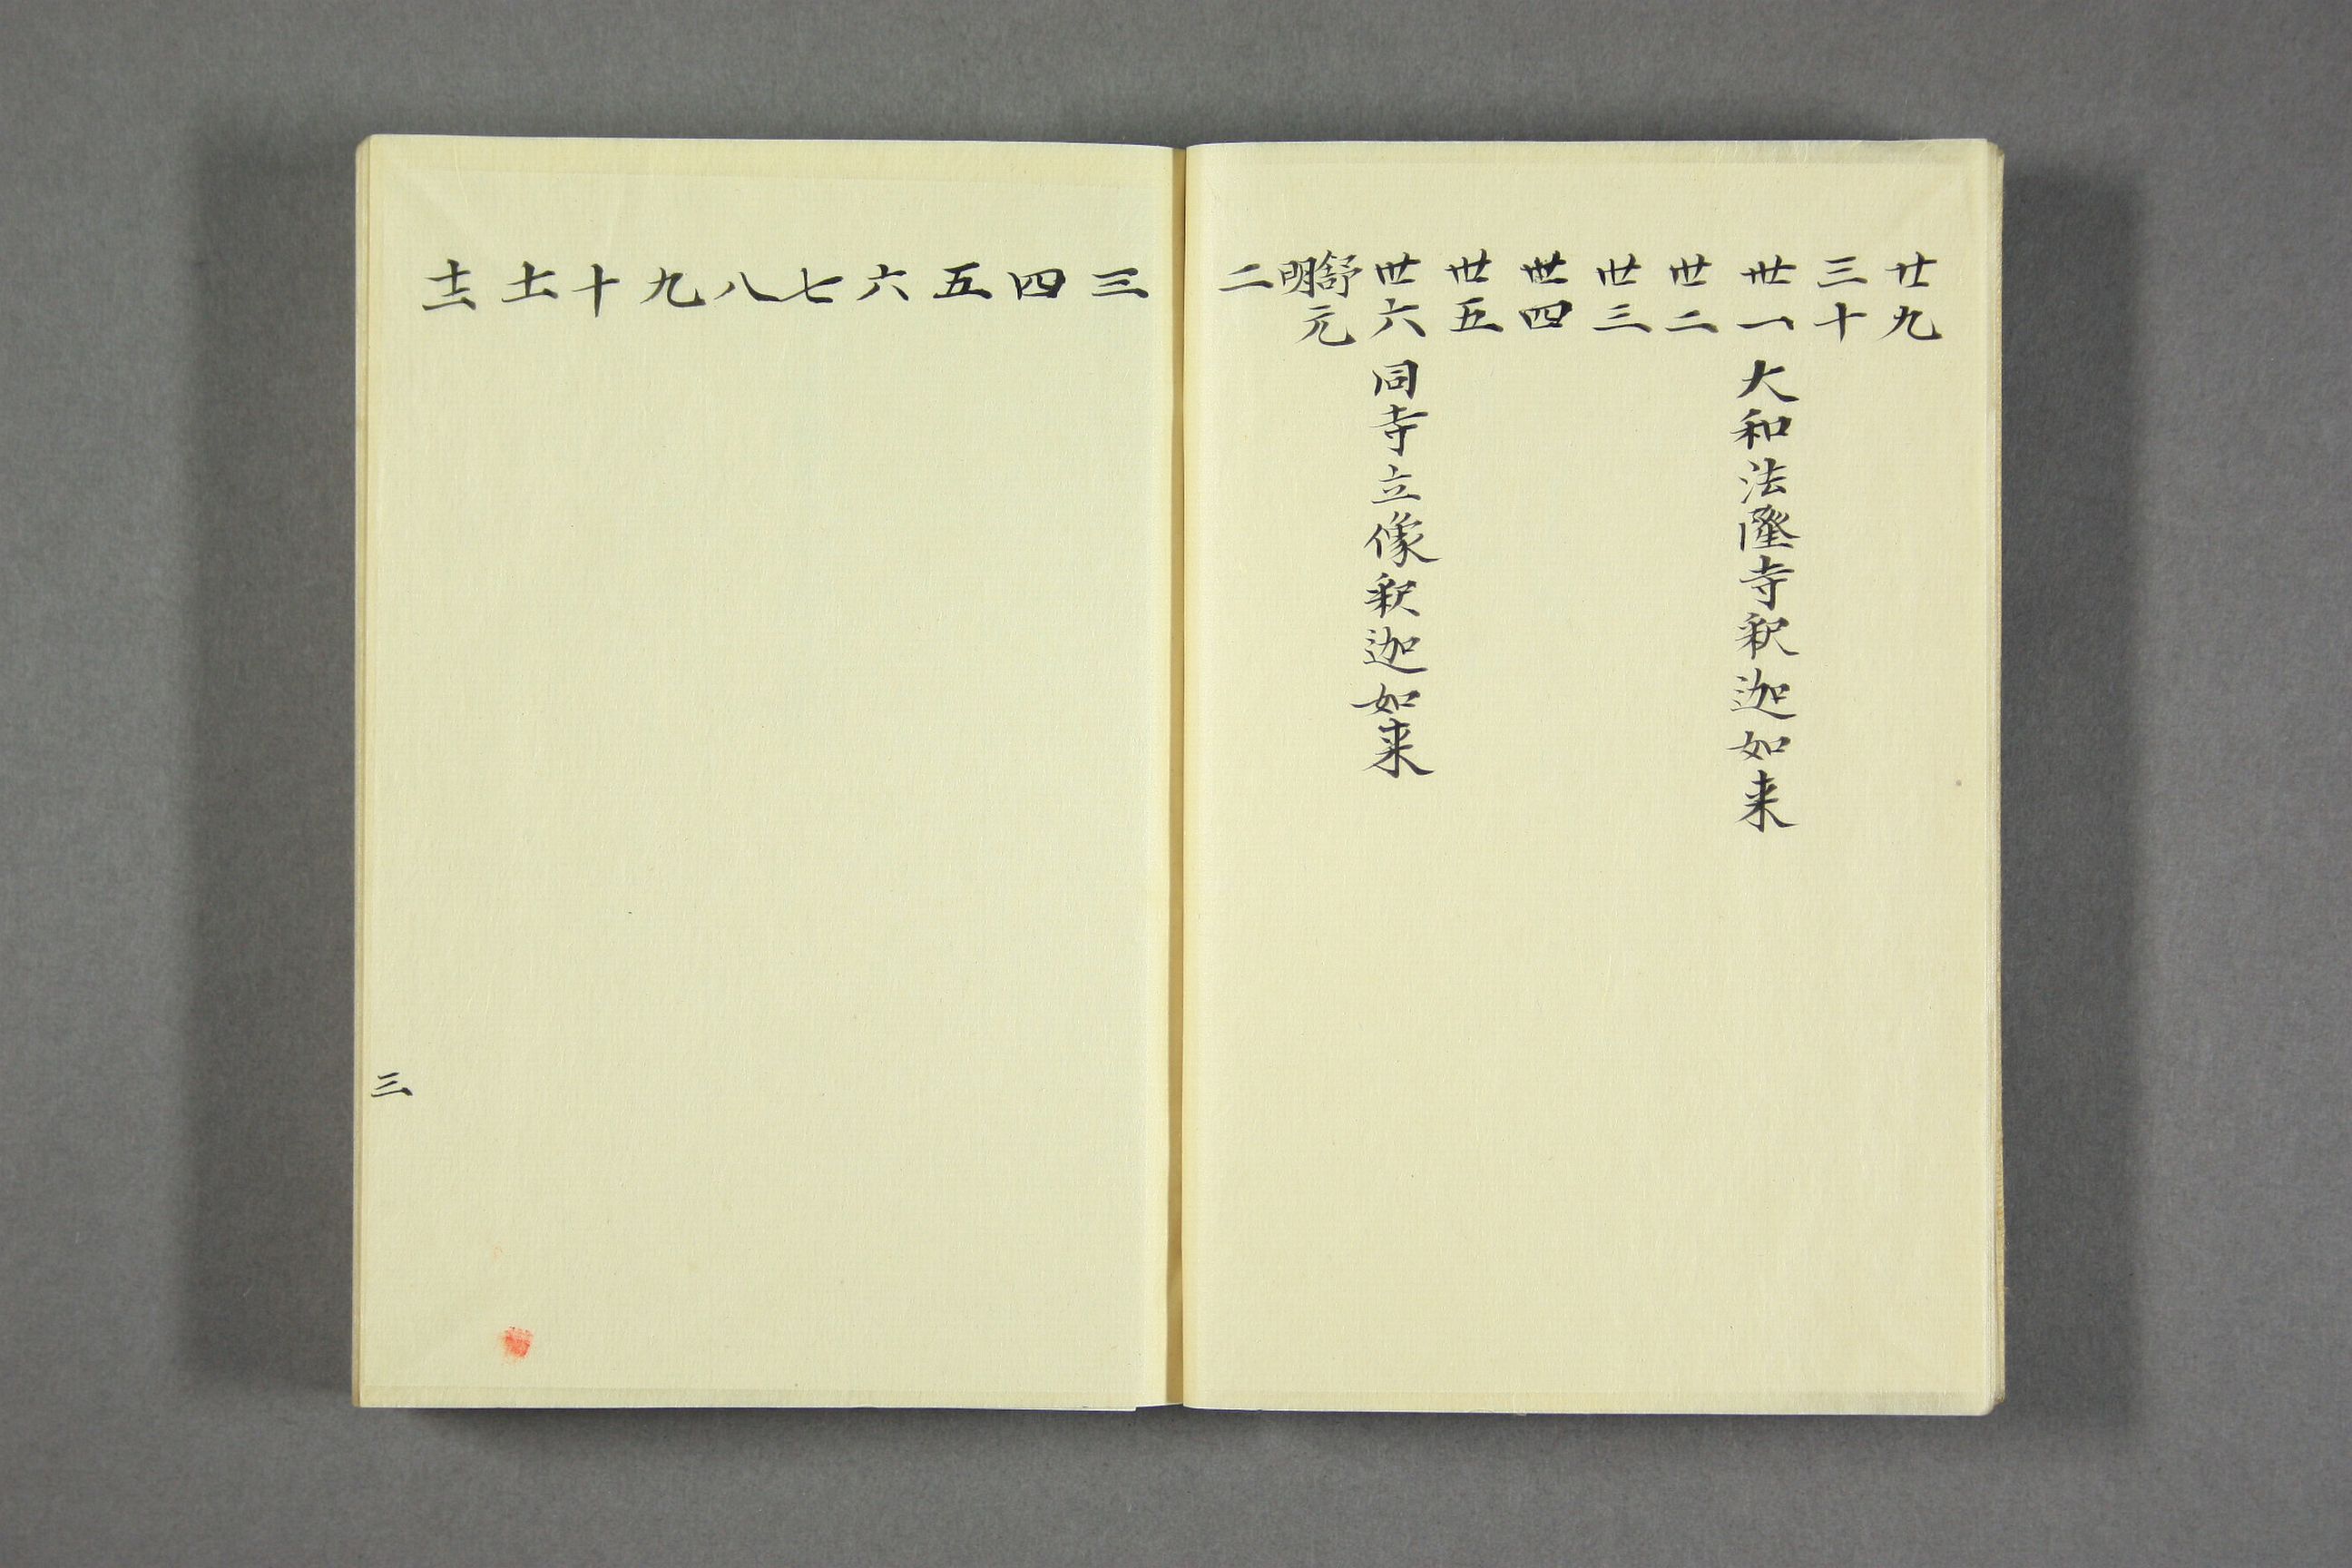 廿九
三十
丗一 大和法隆寺釈迦如来
丗二
丗三
丗四
丗五
丗六 同寺立像釈迦如来
舒明元
二
三
四
五
六
七
八
九
十
十一
十二
三